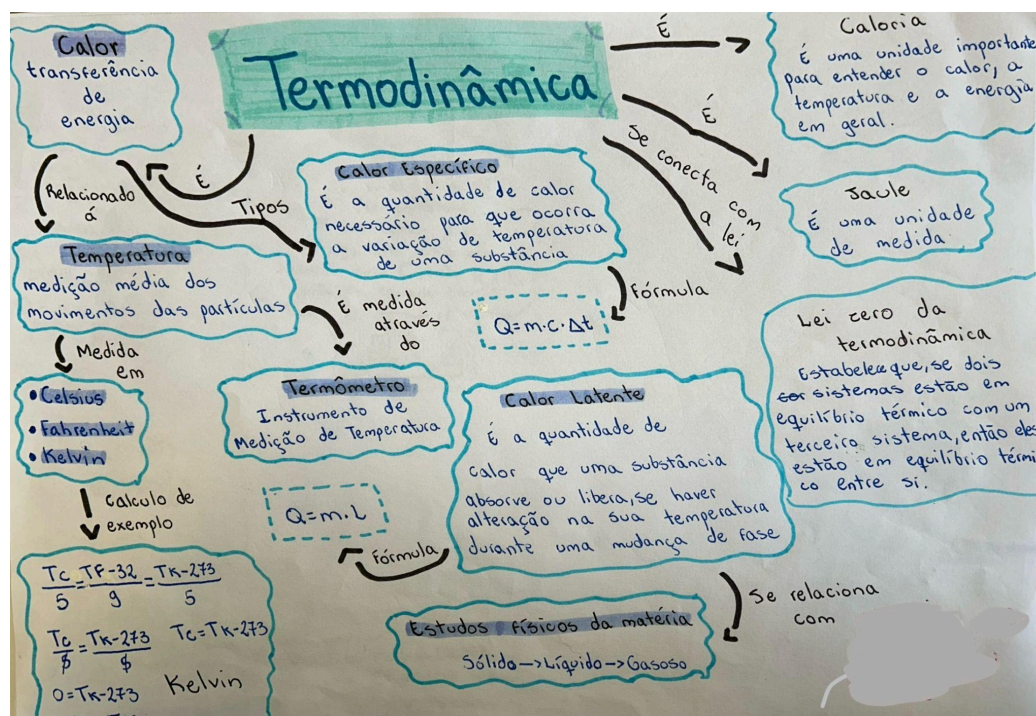 Termodinâmica
Calor
transferência
de
energia
É
Relacionado
á
Tipos
Temperatura
medição média dos
movimentos das partículas
Medida
em
• Celsius
• Fahrenheit
• Kelvin
Calculo de
exemplo
Tc/5=TF-32/9=TK-273/5
Tc/5=TK-273/5 Tc=TK-273
0=TK-273 Kelvin
É medida
através
do
Termômetro
Instrumento de
Medição de Temperatura
Calor Específico
É a quantidade de calor
necessário para que ocorra
a variação de temperatura
de uma substância
Fórmula
Q=m·c·Δt
Calor Latente
É a quantidade de
calor que uma substância
absorve ou libera, se haver
alteração na sua temperatura
durante uma mudança de fase
Fórmula
Q=m·L
Se relaciona
com
Estudos físicos da matéria
Sólido→Líquido→Gasoso
É
Caloria
É uma unidade importante
para entender o calor, a
temperatura e a energia
em geral.
É
Jaule
É uma unidade
de medida
Se conecta com
a lei
Lei zero da
termodinâmica
Estabelece que, se dois
sistemas estão em
equilíbrio térmico com um
terceiro sistema, então eles
estão em equilíbrio térmi
co entre si.